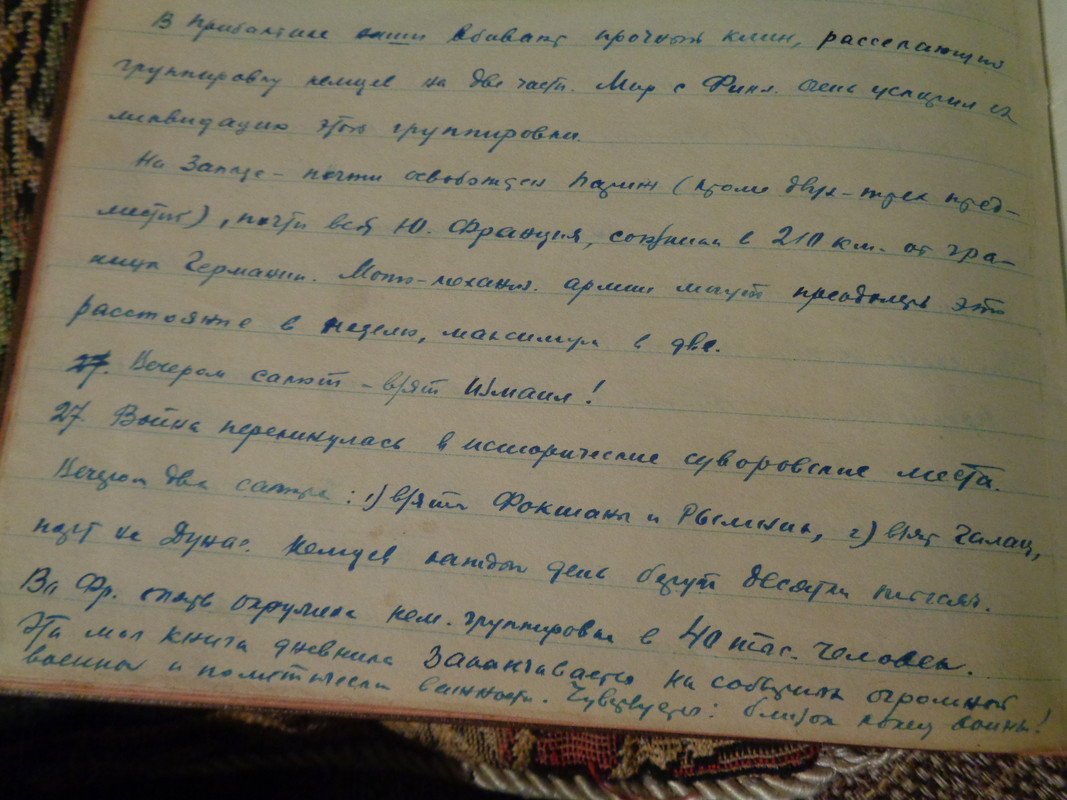 В Прибалтике наши вбивают прочный клин, рассекающий
группировку немцев на две части. Мир с Финл. очень ускорил
ликвидацию этой группировки.
На Западе – почти освобожден Париж (кроме двух-трех пред-
местий), почти вся Ю. Франция, союзники в 210 км. от гра-
ницы Германии. Мото-механиз. армии могут преодолеть это
расстояние в неделю, максимум в две.
27. Вечером салют – взят Измаил!
27. Война перекинулась в исторические суворовские места.
Вечером два салюта: 1) взяты Фокшаны и Рымник, 2) взят Галац,
порт на Дунае. Немцев каждый день берут десятки тысяч.
Во Фр. опять окружена нем. группировка в 40 тыс. человек.
Эта моя книга дневника заканчивается на событиях огромной
военной и политической важности. Чувствуется: близок конец войны!